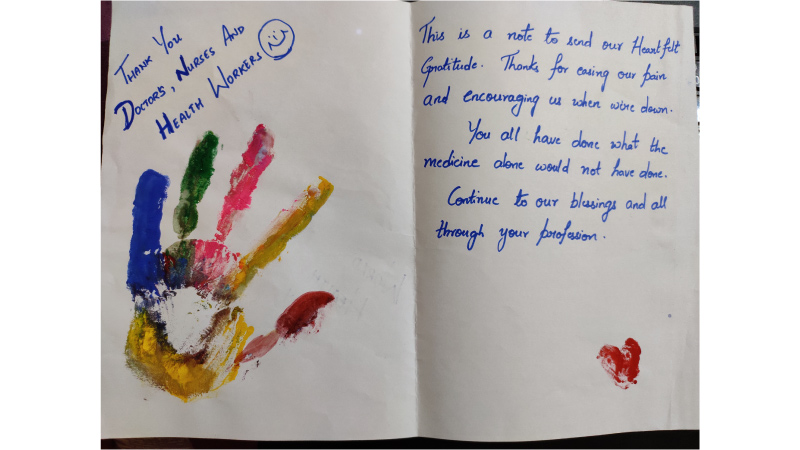 THANK YOU
DOCTORS, NURSES AND
HEALTH WORKERS
This is a note to send our Heartfelt
Gratitude. Thanks for easing our pain
and encouraging us when we're down.
You all have done what the
medicine alone would not have done.
Continue to our blessings and all
through your profession.